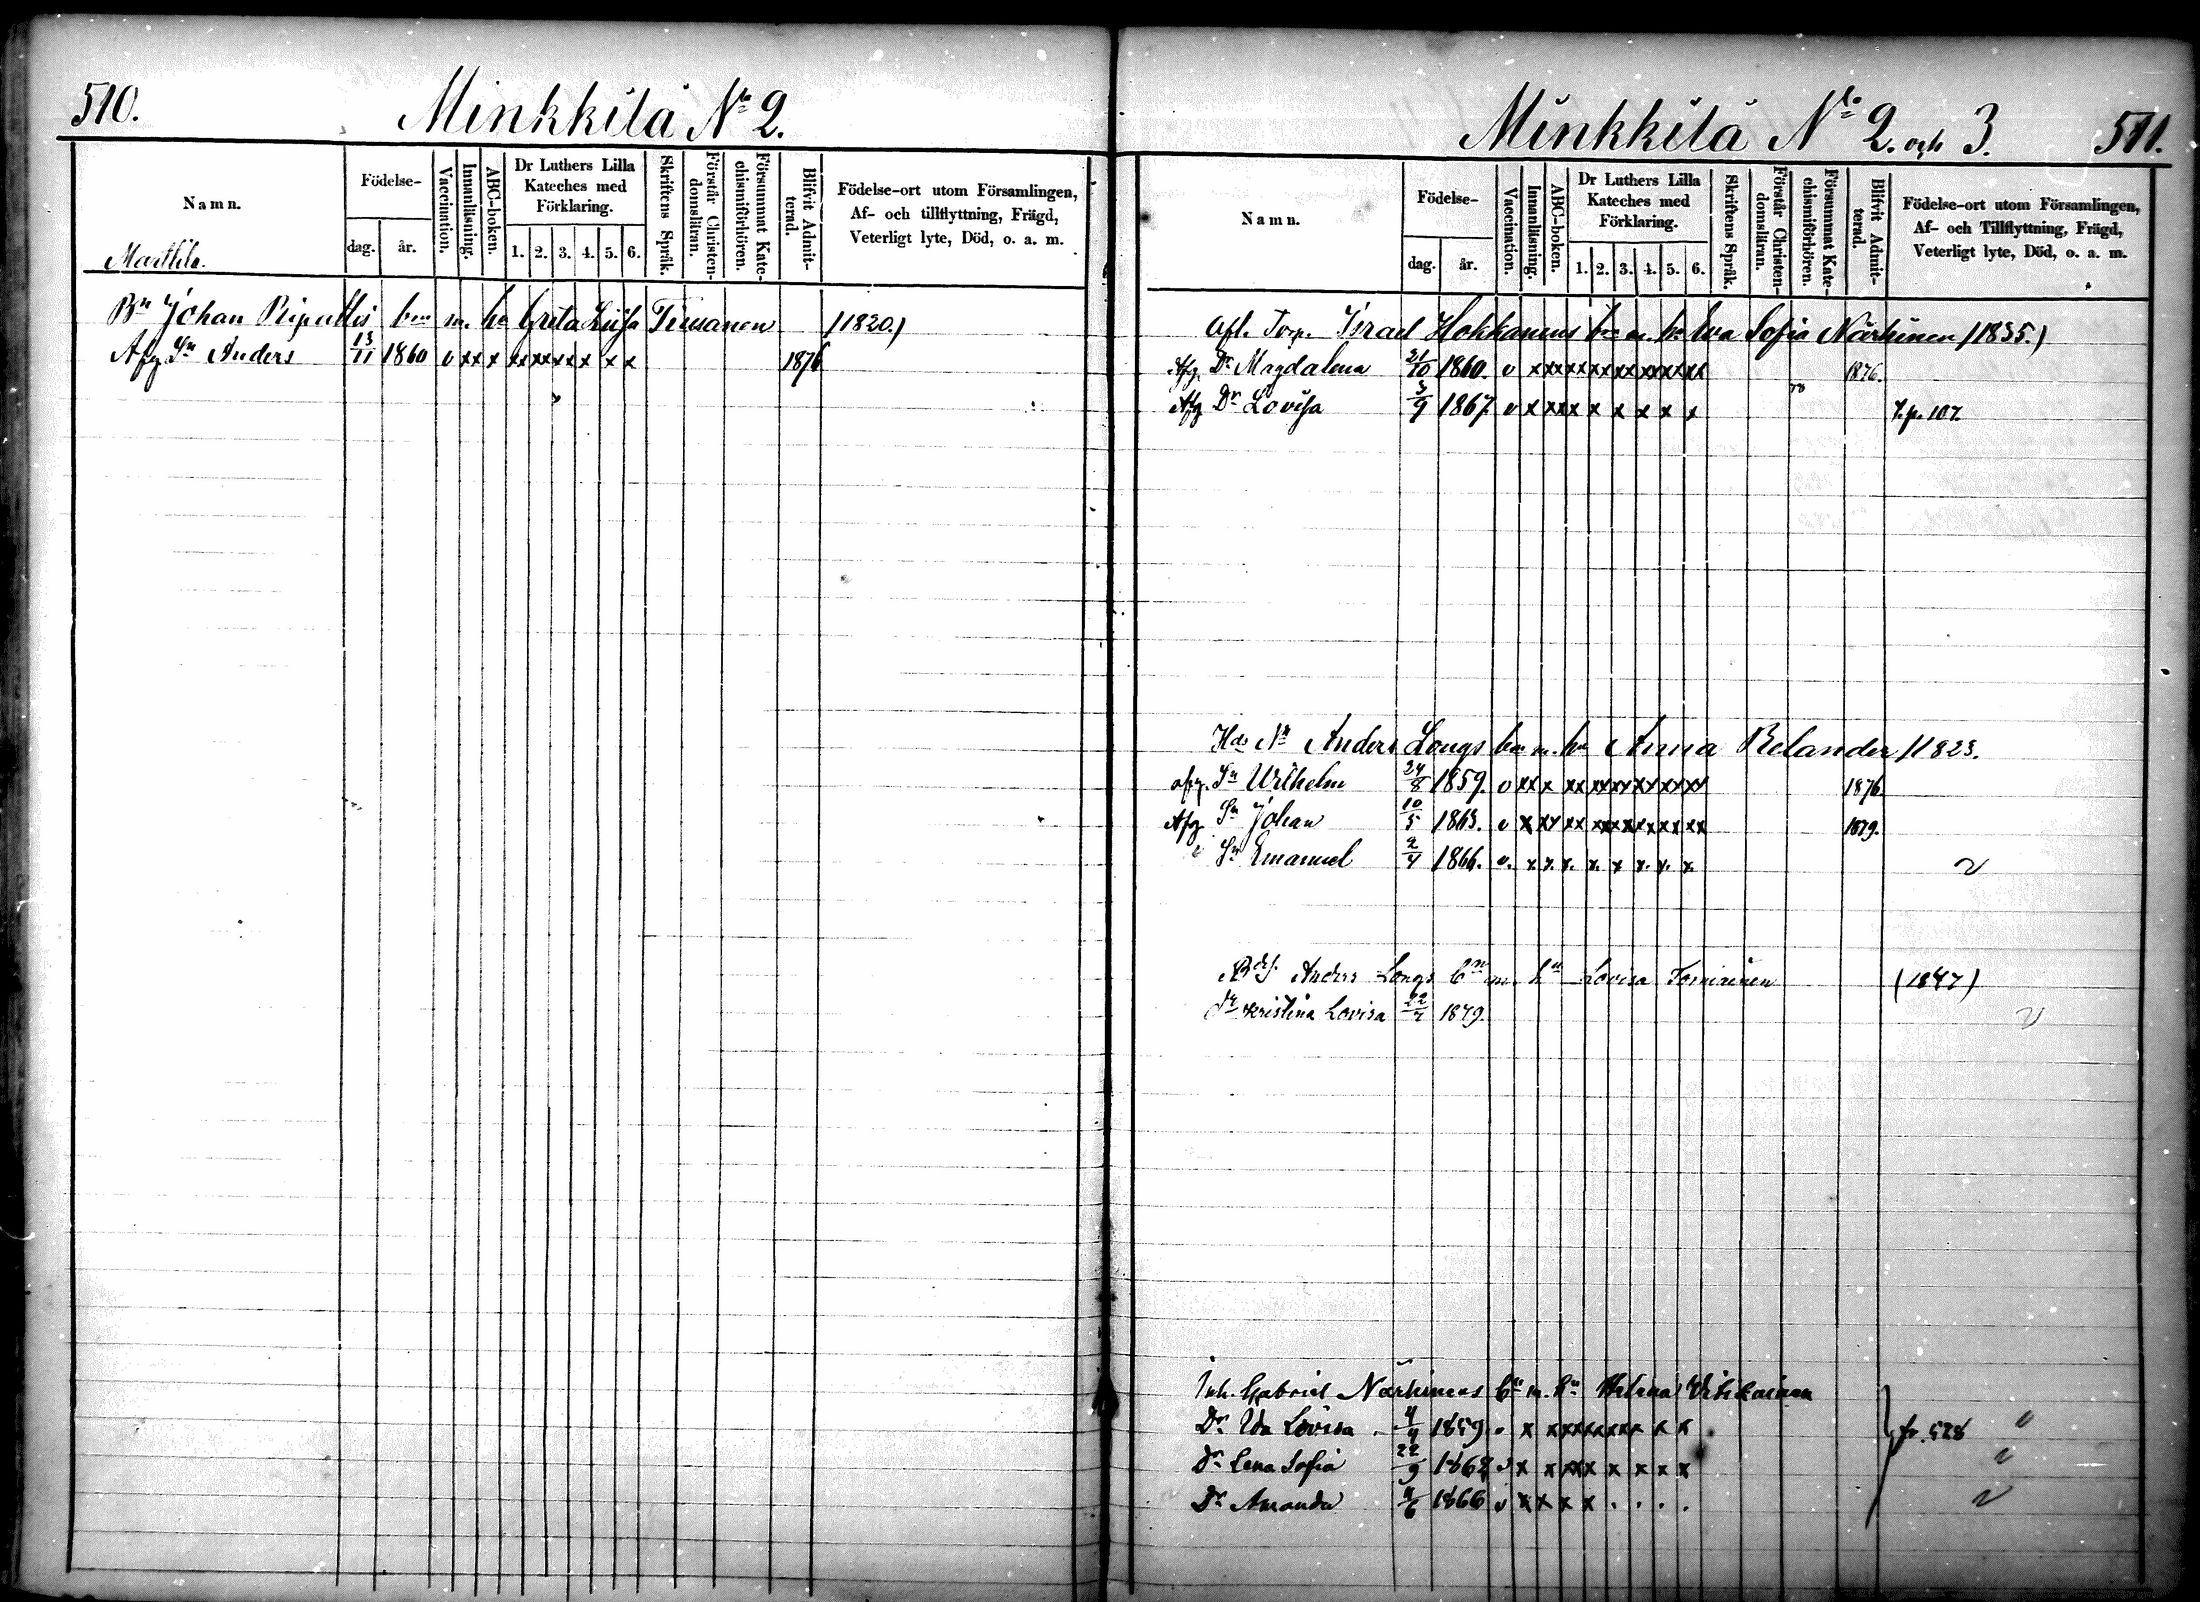 510.
Minkkilä No 2.
Namn.
Födelse-
dag.
år.
Vaccination.
Innanläsning.
ABC-boken.
Dr Luthers Lilla
Kateches med
Förklaring.
1. 2. 3. 4. 5. 6.
Skriftens Språk.
Förstår Christen-
domsläran.
Försummat Kate-
chismiförhören.
Blifvit Admit-
terad.
Födelse-ort utom Församlingen,
Af- och tillflyttning, Frägd,
Veterligt lyte, Död, o. a. m.
Marttila.
Bn Johan Ripattis bn m. hu Greta Liisa Timanen (1820.)
Afg Sn Anders 13/11 1860 v xx x xx xx xx x x x 1876
Minkkilä No 2. och 3.
511.
Namn.
Födelse-
dag.
år.
Vaccination.
Innanläsning.
ABC-boken.
Dr Luthers Lilla
Kateches med
Förklaring.
1. 2. 3. 4. 5. 6.
Skriftens Språk.
Förstår Christen-
domsläran.
Försummat Kate-
chismiförhören.
Blifvit Admit-
terad.
Födelse-ort utom Församlingen,
Af- och Tillflyttning, Frägd,
Veterligt lyte, Död, o. a. m.
Afl. Torp. Israel Hokkanens bn m. hu Eva Sofia Närhinen (1835.)
Afg. Dr Magdalena 21/10 1860. v x xx xx xx xx xx xx xx 1876.
Afg Dr Lovisa 3/9 1867 v x xx x x x x x x 78 T.p. 107.
Anders Longs bn m. hu Anna Relander (1823.
afg. Sn Wilhelm 24/8 1859. v xx x xx xx xx xx xx xx 1876.
Afg Sn Johan 10/5 1863. v x xx xx xx xx xx xx xx 1879.
Sn Emanuel 2/4 1866. v. x x. x. x. x x. x. x.
Anders Longs bn m. hu Lovisa Torniainen (1847)
dr Kristina Lovisa 22/7 1879.
Inh. Gabriel Närhinens bn m. hu Helena
Dr Ida Lovisa 4/4 1859 v x x xx xx xx x x x fr. 528
Dr Lena Sofia 22/9 1862 v x x xx x x x x
Dr Amanda 4/6 1866 v x x x x . . . .